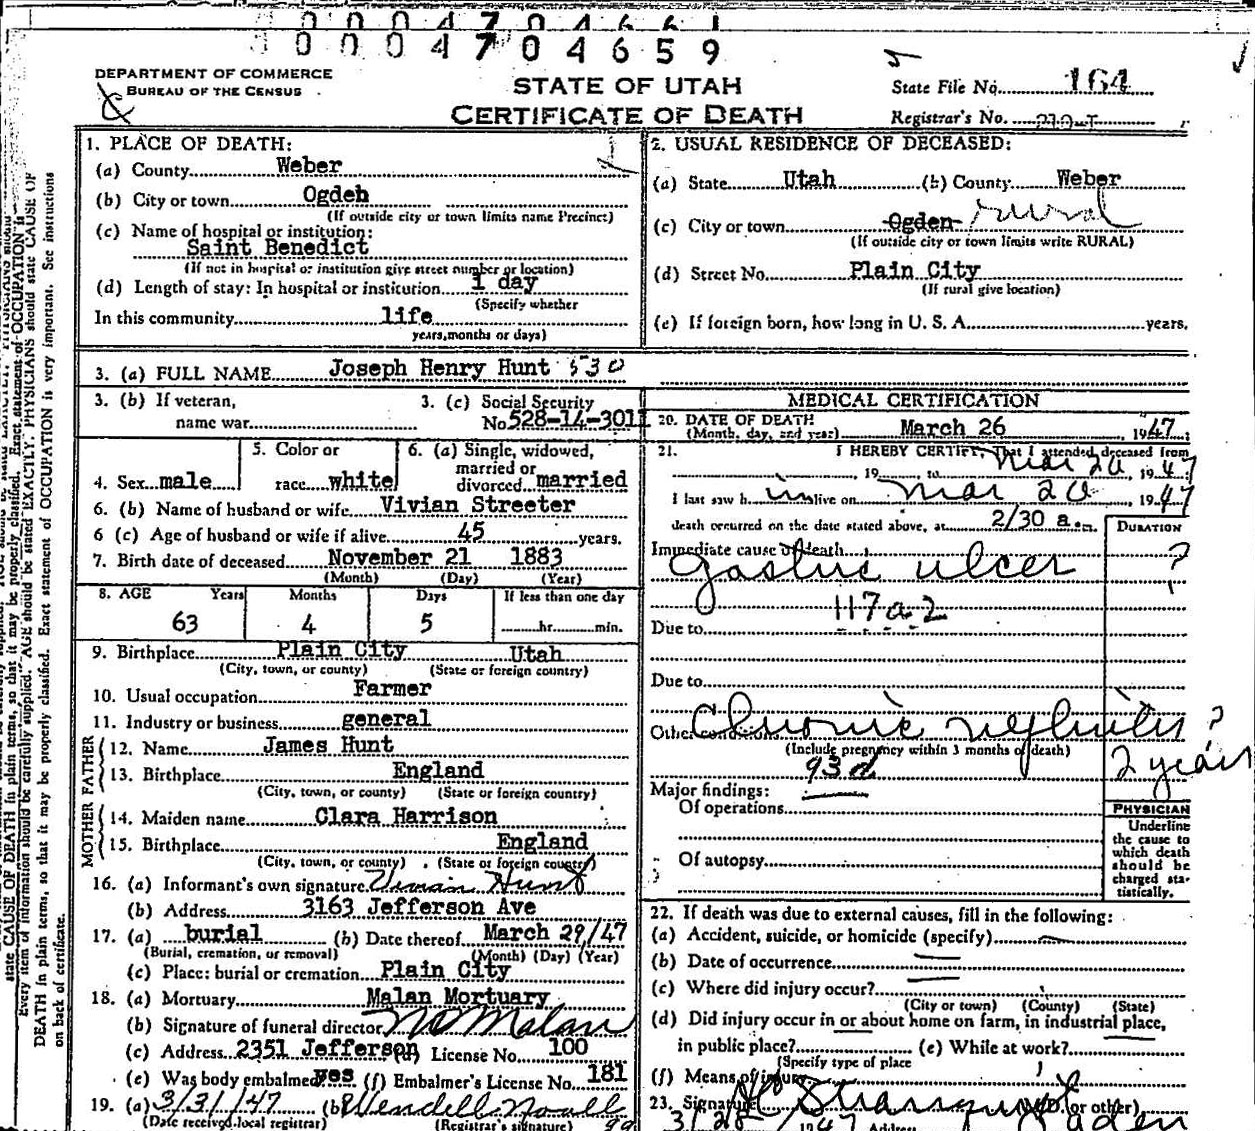 0 0 0 4 7 0 4 6 6 1
0 0 0 4 7 0 4 6 5 9
DEPARTMENT OF COMMERCE
BUREAU OF THE CENSUS
STATE OF UTAH
CERTIFICATE OF DEATH
State File No. 164
Registrar's No.
1. PLACE OF DEATH:
(a) County Weber
(b) City or town Ogden
(If outside city or town limits name Precinct)
(c) Name of hospital or institution:
Saint Benedict
(If not in hospital or institution give street number or location)
(d) Length of stay: In hospital or institution 1 day
(Specify whether
In this community life
years, months or days)
2. USUAL RESIDENCE OF DECEASED:
(a) State Utah (b) County Weber
(c) City or town Ogden rural
(If outside city or town limits write RURAL)
(d) Street No. Plain City
(If rural give location)
(e) If foreign born, how long in U. S. A. years.
3. (a) FULL NAME Joseph Henry Hunt 530
3. (b) If veteran,
name war
3. (c) Social Security
No 528-14-3011
4. Sex male
5. Color or
race white
6. (a) Single, widowed,
married or
divorced married
6. (b) Name of husband or wife Vivian Streeter
6 (c) Age of husband or wife if alive 45 years.
7. Birth date of deceased November 21 1883
(Month) (Day) (Year)
8. AGE Years Months Days If less than one day
63 4 5 hr. min.
9. Birthplace Plain City Utah
(City, town, or county) (State or foreign country)
10. Usual occupation Farmer
11. Industry or business general
FATHER
12. Name James Hunt
13. Birthplace England
(City, town, or county) (State or foreign country)
MOTHER
14. Maiden name Clara Harrison
15. Birthplace England
(City, town, or county) (State or foreign country)
16. (a) Informant's own signature Vivian Hunt
(b) Address 3163 Jefferson Ave
17. (a) burial (b) Date thereof March 29/47
(Burial, cremation, or removal) (Month) (Day) (Year)
(c) Place: burial or cremation Plain City
18. (a) Mortuary Malan Mortuary
(b) Signature of funeral director Malan
(c) Address 2351 Jefferson License No. 100
(e) Was body embalmed yes (f) Embalmer's License No. 181
19. (a) 3/31/47 (b) Wendell
(Date received local registrar) (Registrar's signature)
MEDICAL CERTIFICATION
20. DATE OF DEATH
(Month, day, and year) March 26 1947
21. I HEREBY CERTIFY, That I attended deceased from
, 19 to Mar 26, 1947
I last saw h im alive on Mar 26 1947
death occurred on the date stated above, at 2/30 a m.
DURATION
Immediate cause of death
gastric ulcer ?
117a2
Due to
Due to
Other conditions Chronic nephritis ?
(Include pregnancy within 3 months of death)
93d 2 years
Major findings:
Of operations
Of autopsy
PHYSICIAN
Underline
the cause to
which death
should be
charged sta-
tistically.
22. If death was due to external causes, fill in the following:
(a) Accident, suicide, or homicide (specify)
(b) Date of occurrence
(c) Where did injury occur?
(City or town) (County) (State)
(d) Did injury occur in or about home on farm, in industrial place,
in public place? (e) While at work?
(Specify type of place
(f) Means of injury
23. Signature (M.D. or other)
3/28 1947 Address Ogden
state CAUSE OF DEATH in plain terms, so that it may be properly classified. Exact statement of OCCUPATION is
Every item of information should be carefully supplied. AGE should be stated EXACTLY. PHYSICIANS should state CAUSE OF
DEATH in plain terms, so that it may be properly classified. Exact statement of OCCUPATION is very important. See instructions
on back of certificate.